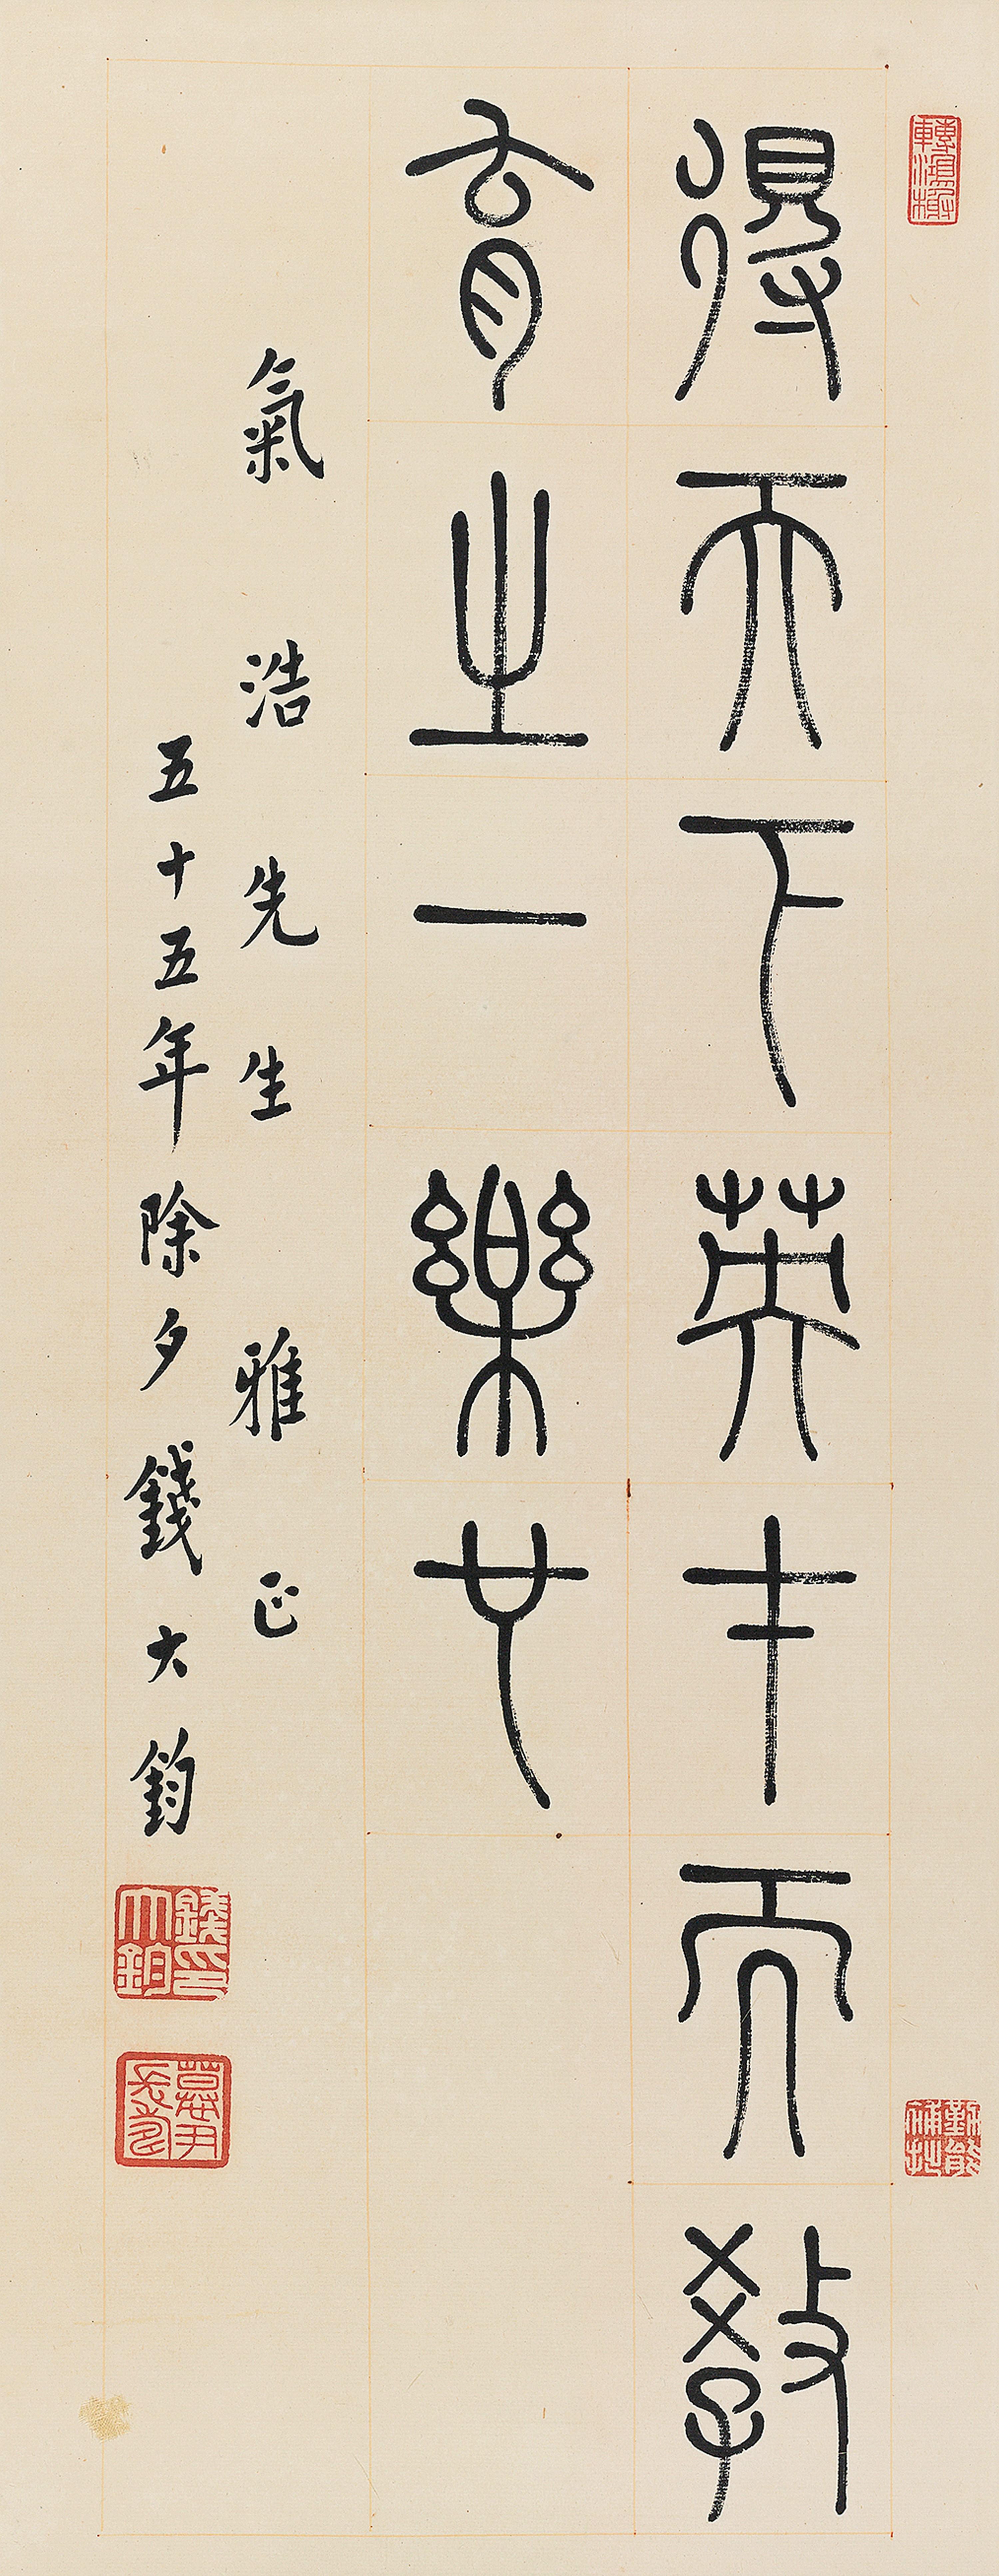 得天下英才而教
育之一樂也
氣浩先生雅正
五十五年除夕錢大鈞
錢大鈞印
慕尹
勤能補拙